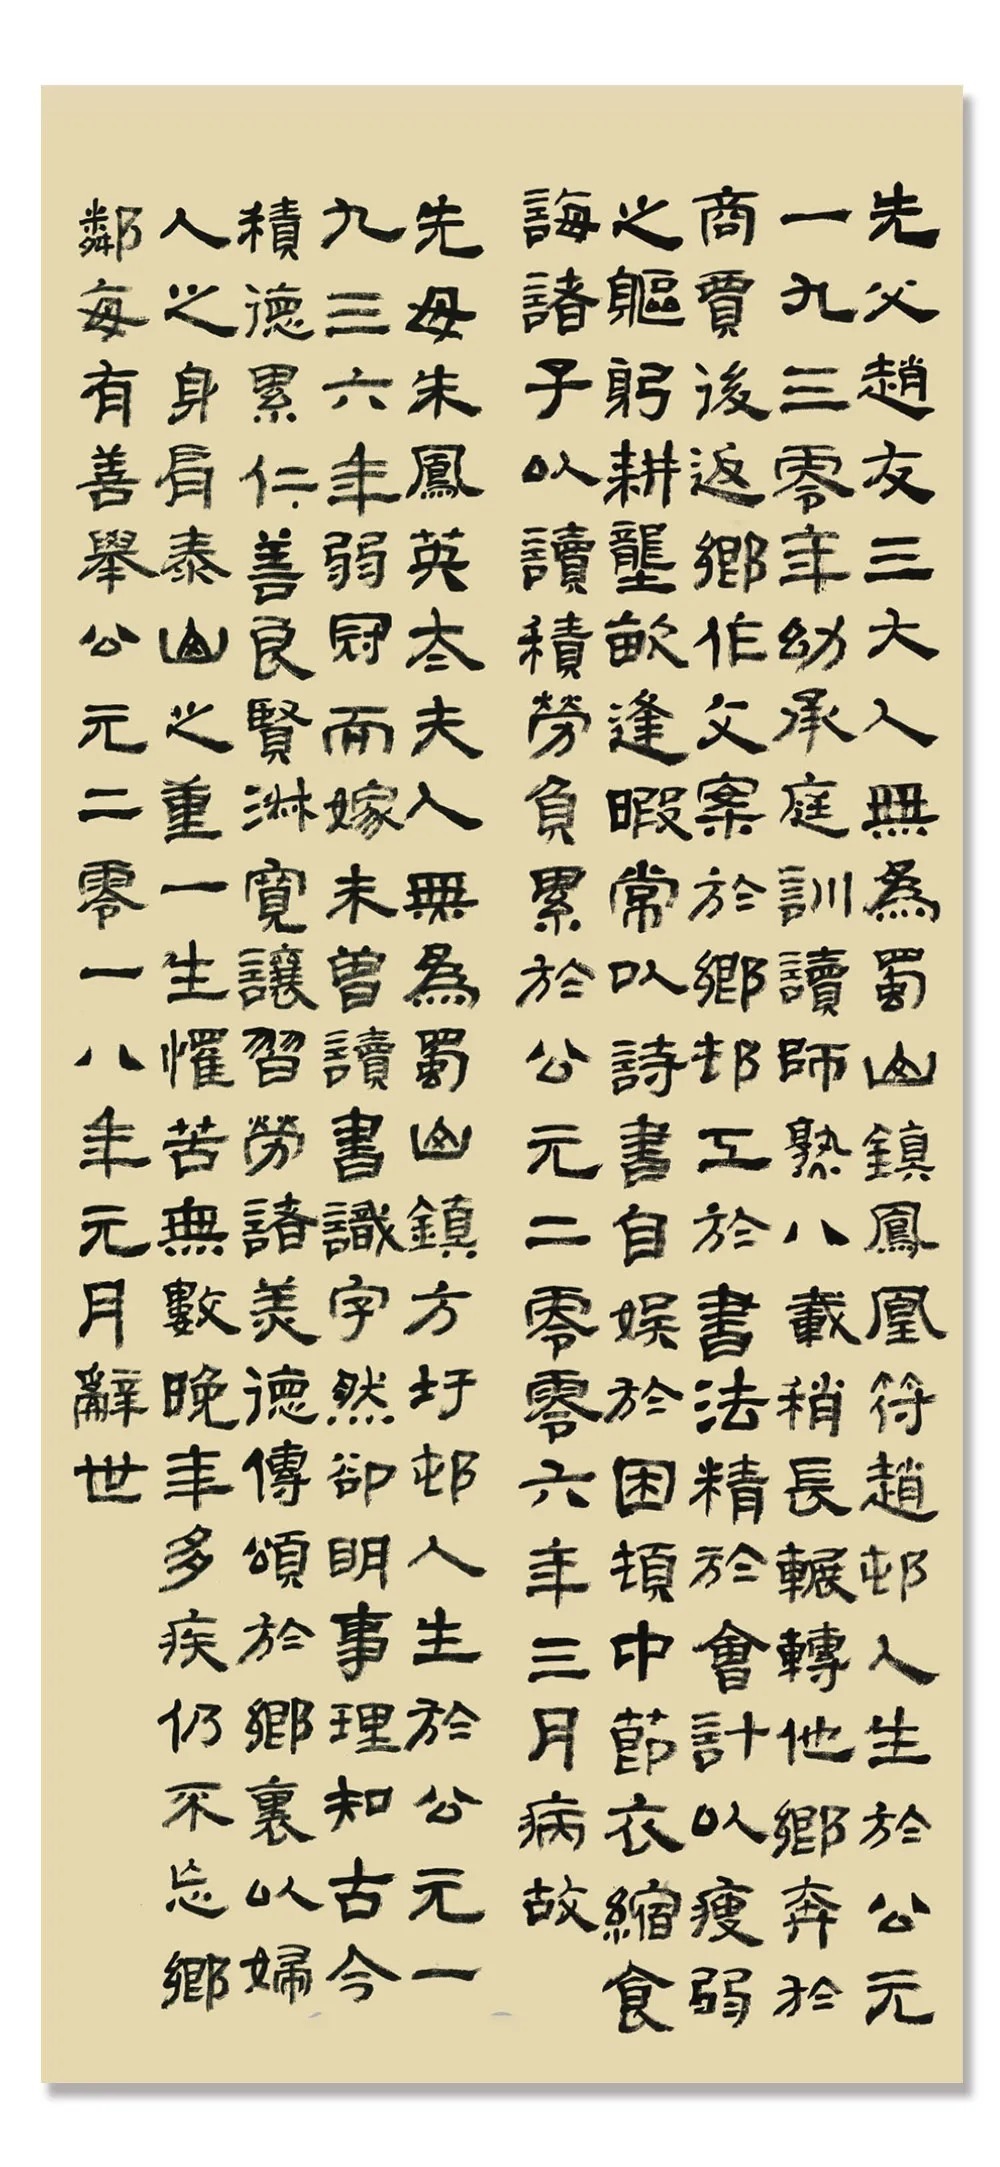 先父趙友三大人無為蜀山鎮鳳凰符趙邨人生於公元
一九三零年幼承庭訓讀師熟八載稍長輾轉他鄉奔於
商賈後返鄉作文案於鄉邨工於書法精於會計以瘦弱
之軀躬耕壟畝逢暇常以詩書自娱於困頓中節衣縮食
誨諸子以讀積勞負累於公元二零零六年三月病故
先母朱鳳英太夫人無為蜀山鎮方圩邨人生於公元一
九三六年弱冠而嫁未曾讀書識字然卻明事理知古今
積德累仁善良賢淋寬讓習勞諸美德傳頌於鄉裏以婦
人之身肩泰山之重一生懼苦無數晚年多疾仍不忘鄉
鄰每有善舉公元二零一八年元月辭世